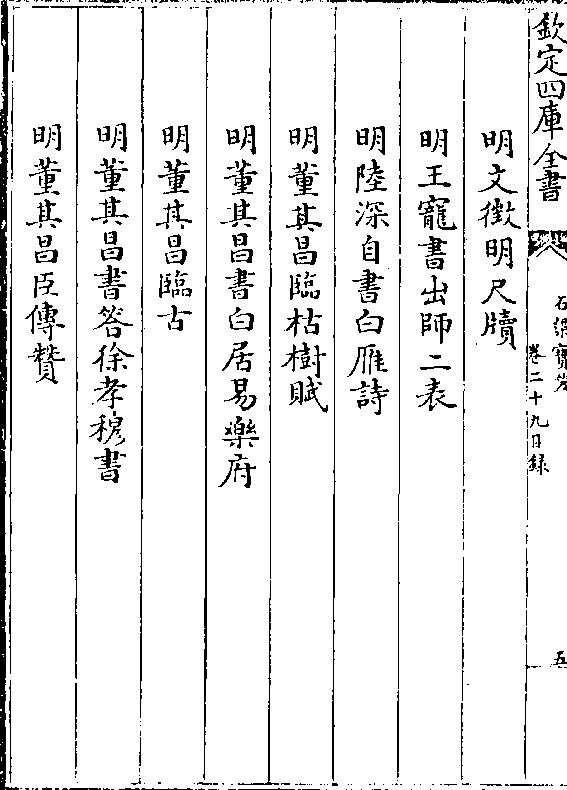 欽定四庫全書
石渠寶笈
卷二十九目録
五
明文徵明尺牘
明王寵書出師二表
明陸深自書白雁詩
明董其昌臨枯樹賦
明董其昌書白居易樂府
明董其昌臨古
明董其昌書答徐孝穆書
明董其昌臣傳贊